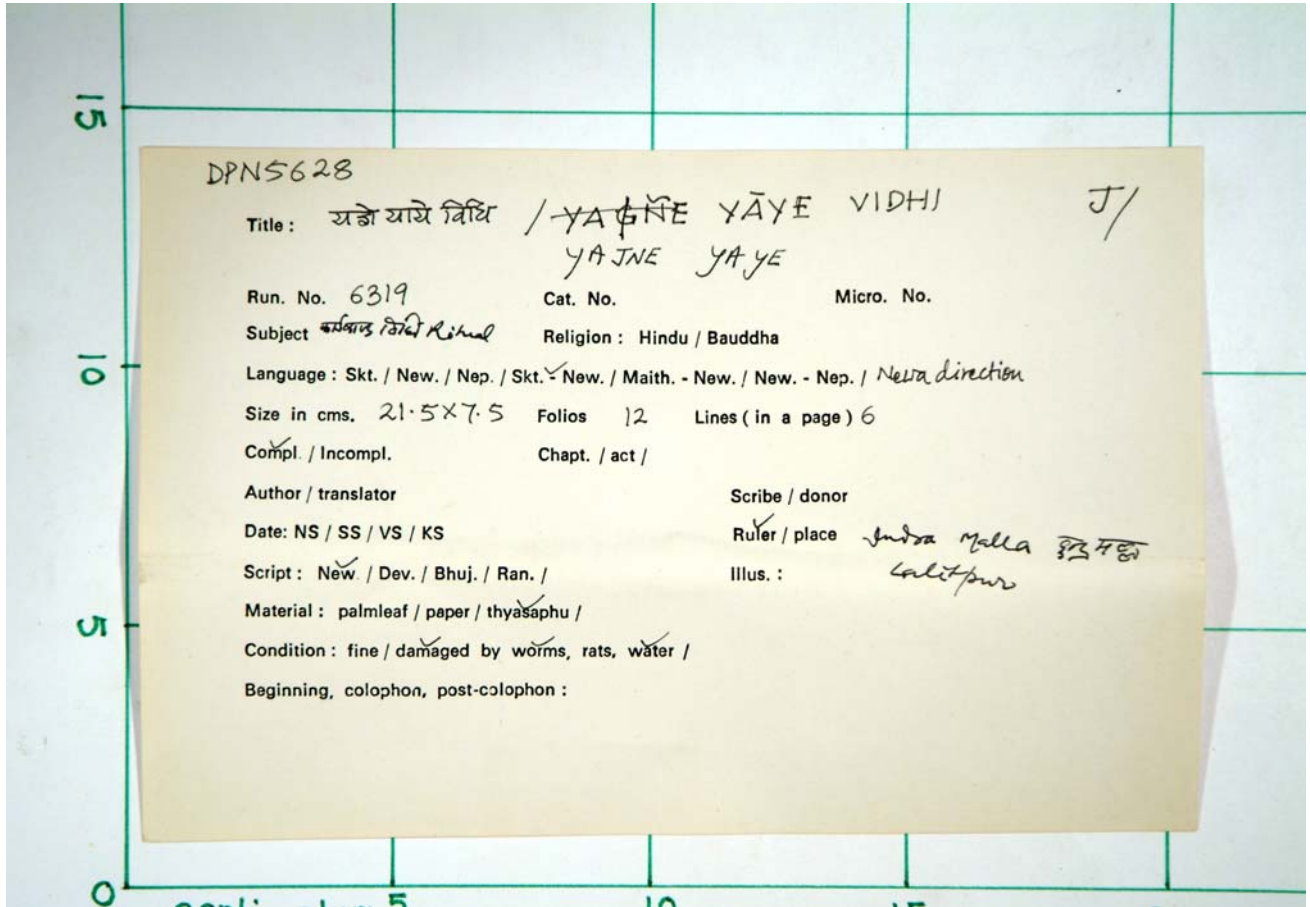 15
DPN5628
Title : यज्ञे याये विधि / YAGÑE YĀYE VIDHI J/
YAJNE YAYE
Run. No. 6319 Cat. No. Micro. No.
Subject कर्मकाण्ड विधि Ritual Religion : Hindu / Bauddha
10
Language : Skt. / New. / Nep. / Skt. - New. / Maith. - New. / New. - Nep. / Newa direction
Size in cms. 21.5X7.5 Folios 12 Lines ( in a page ) 6
Compl. / Incompl. Chapt. / act /
Author / translator Scribe / donor
Date: NS / SS / VS / KS Ruler / place Indra Malla इन्द्र मल्ल
Script : New. / Dev. / Bhuj. / Ran. / Illus. : Lalitpur
5
Material : palmleaf / paper / thyasaphu /
Condition : fine / damaged by worms, rats, water /
Beginning, colophon, post-colophon :
0 5 10 15